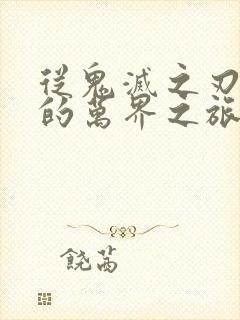 從鬼滅之刃
的萬界之旅
饒芮